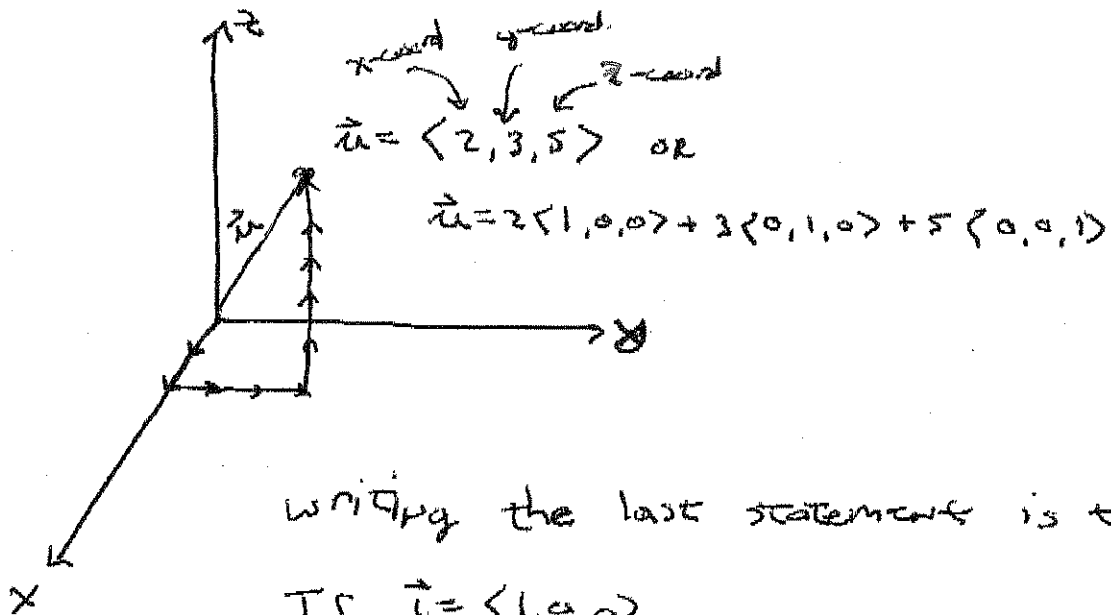 z
x-coord y-coord z-coord
u⃗ = ⟨2, 3, 5⟩ OR
u⃗ = 2⟨1, 0, 0⟩ + 3⟨0, 1, 0⟩ + 5⟨0, 0, 1⟩
u⃗
y
writing the last statement is
x
If i⃗ = ⟨1, 0, 0⟩